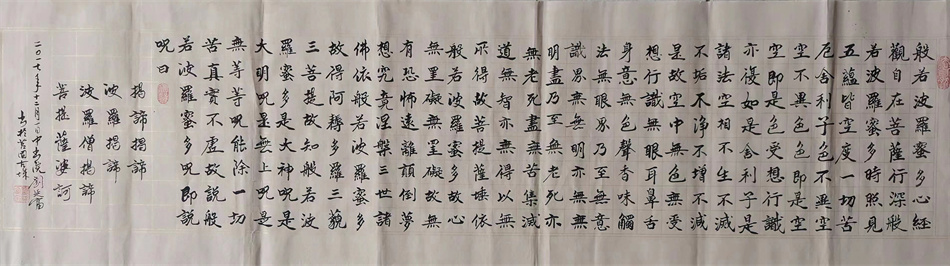 般若波羅蜜多心經
觀自在菩薩行深般
若波羅蜜多時照見
五蘊皆空度一切苦
厄舍利子色不異空
空不異色色即是空
空即是色受想行識
亦復如是舍利子是
諸法空相不生不滅
不垢不淨不增不減
是故空中無色無受
想行識無眼耳鼻舌
身意無色聲香味觸
法無眼界乃至無意
識界無無明亦無無
明盡乃至無老死亦
無老死盡無苦集滅
道無智亦無得以無
所得故菩提薩埵依
般若波羅蜜多故心
無罣礙無罣礙故無
有恐怖遠離顛倒夢
想究竟涅槃三世諸
佛依般若波羅蜜多
故得阿耨多羅三藐
三菩提故知般若波
羅蜜多是大神呪是
大明呪是無上呪是
無等等呪能除一切
苦真實不虛故說般
若波羅蜜多呪即說
呪曰
揭諦揭諦
波羅揭諦
波羅僧揭諦
菩提薩婆訶
二〇一七年十二月一日